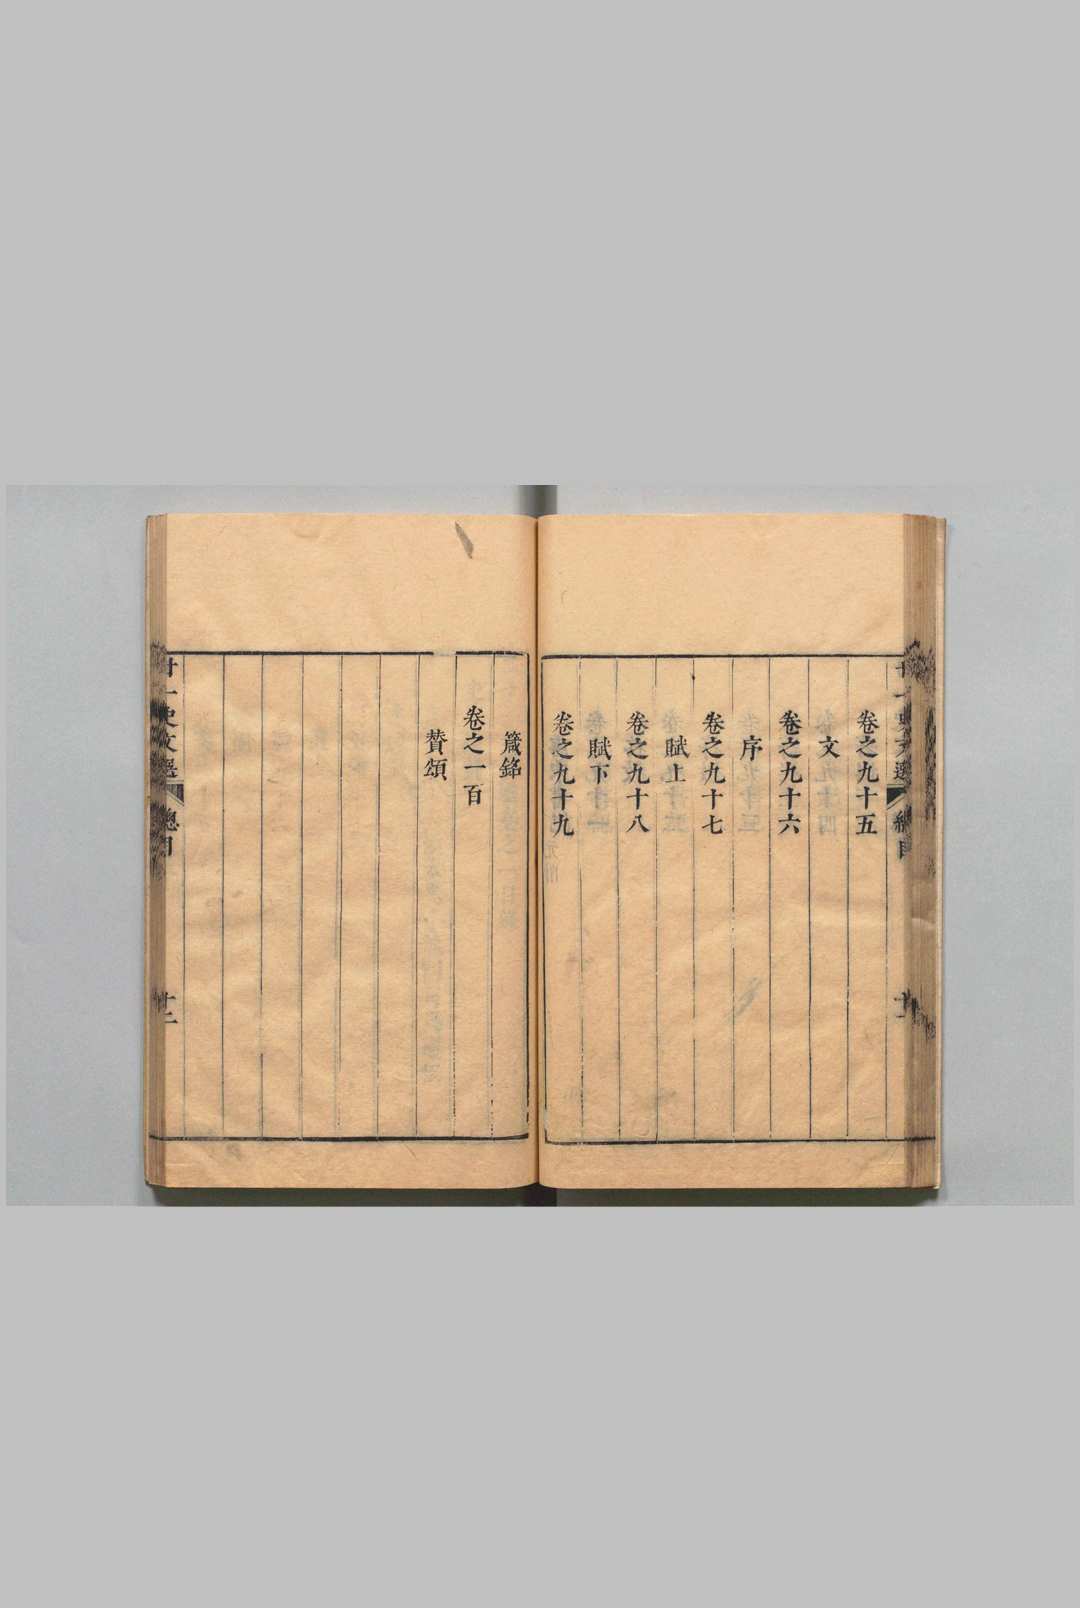 卷之九十五
文
卷之九十六
序
卷之九十七
賦上
卷之九十八
賦下
卷之九十九
箴銘
卷之一百
贊頌
廿一史文選
總目
十二